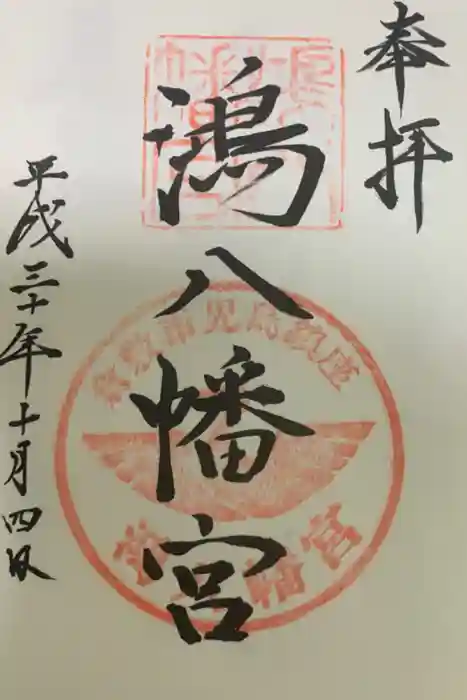 奉拝
鴻八幡宮
平成三十年十月四日
倉敷市児島鎮座
鴻八幡宮